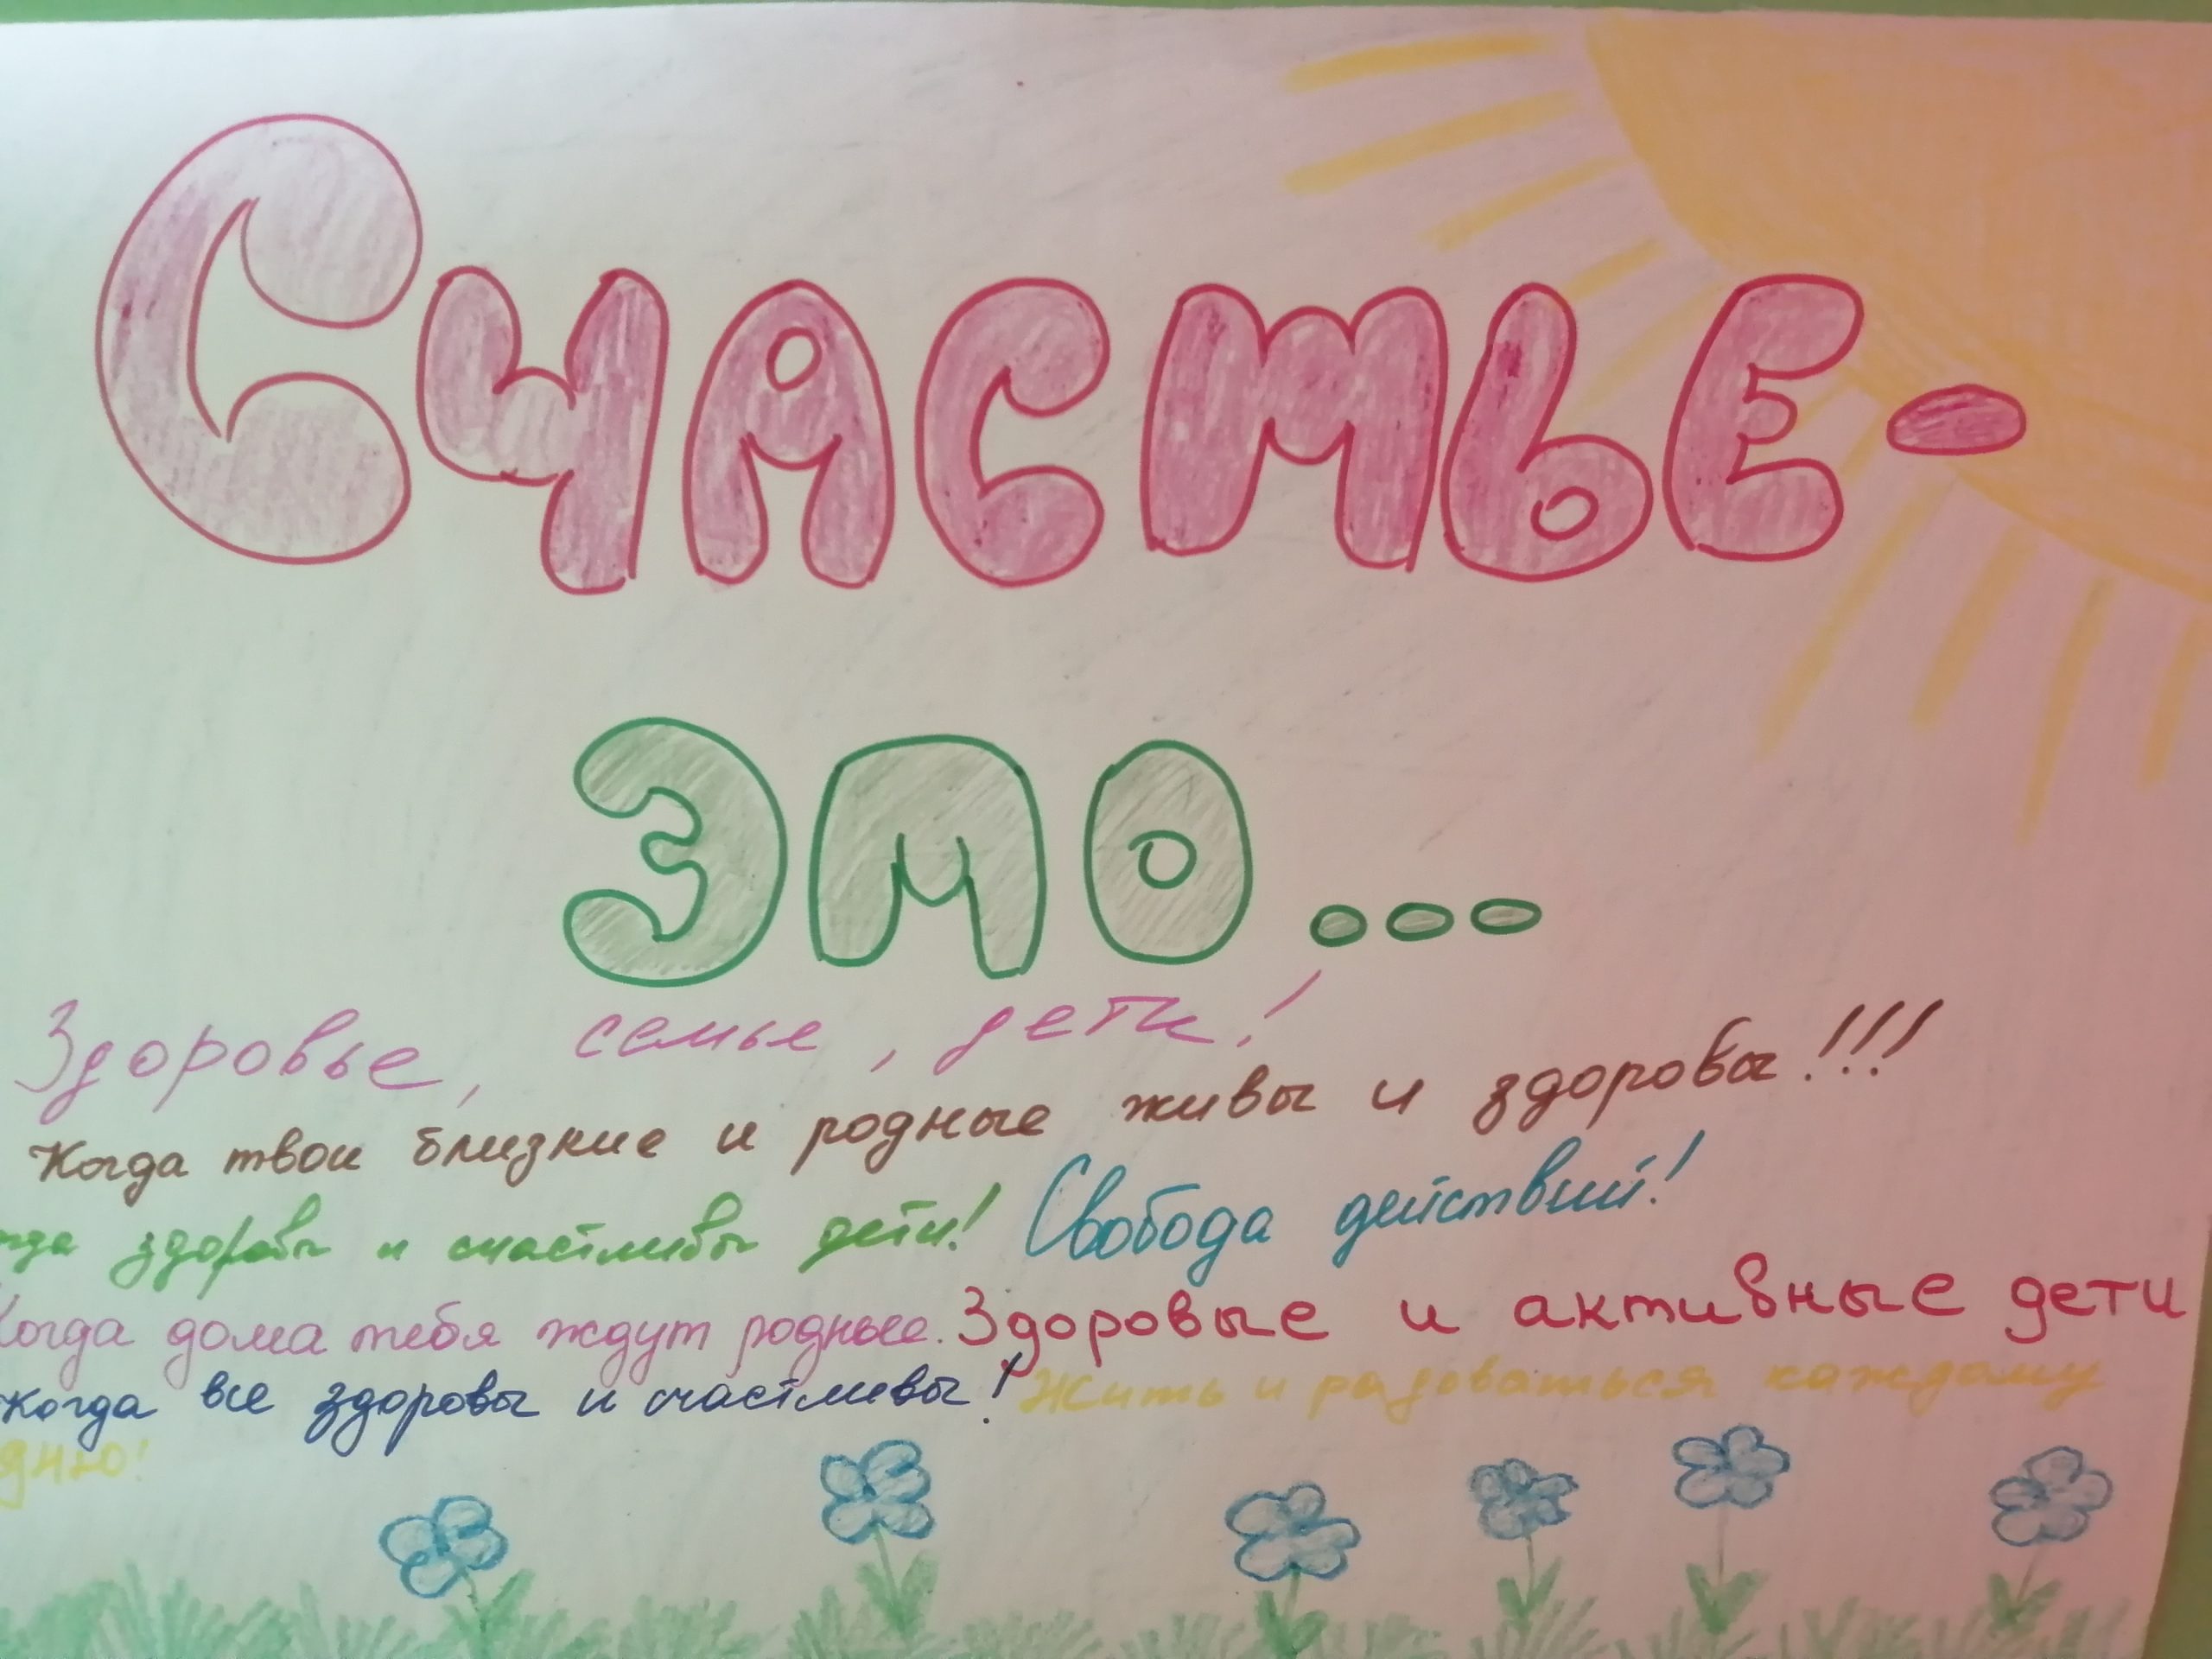 Счастье-
это...
Здоровье, семье, дети!
Когда твои близкие и родные живы и здоровы!!!
гда здоровы и счастливы дети! Свобода действий!
Когда дома тебя ждут родные. Здоровые и активные дети
Когда все здоровы и счастливы! Жить и радоваться каждому
дню!